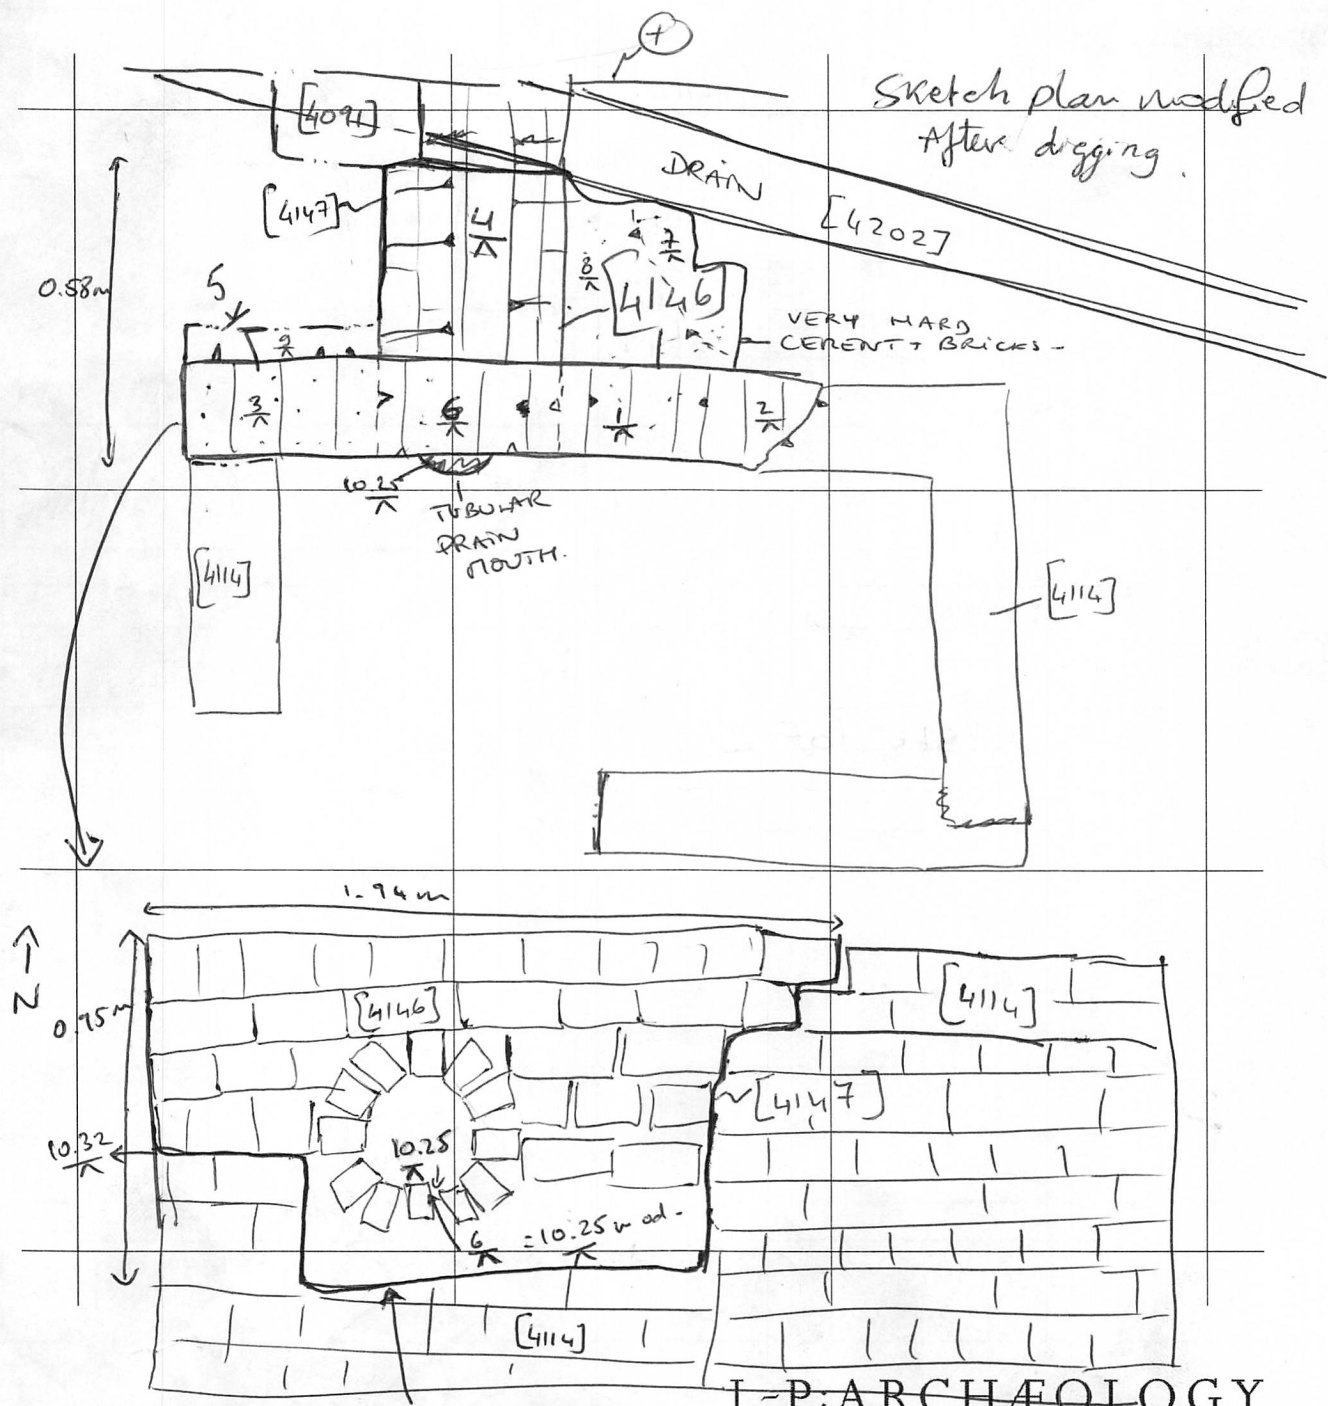 +
Sketch plan modified
After digging.
[4091]
DRAIN
[4202]
[4147]
4
7
8
[4146]
0.58m
5
9
VERY HARD
CEMENT + BRICKS -
3
6
1
2
10.25
TUBULAR
DRAIN
MOUTH.
[4114]
[4114]
1.94m
N
[4146]
[4114]
0.95m
[4147]
10.32
10.25
6 = 10.25m od.
[4114]
L-P:ARCHÆOLOGY